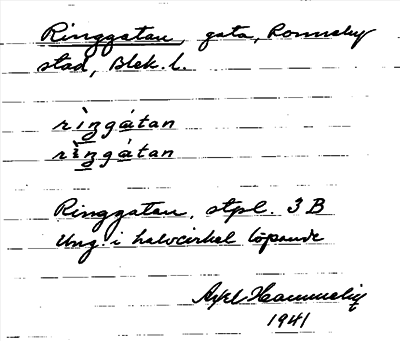 Ringgatan, gata, Ronneby
stad, Blek. l.
rìngátan
rìngátan
Ringgatan, stpl. 3 B
Ung. i halvcirkel löpande
Axel
1941